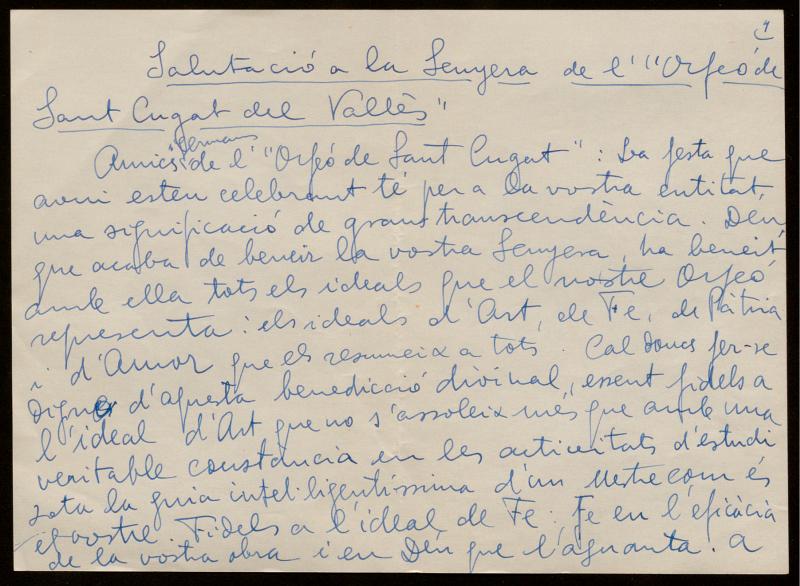 1
Salutació a la Senyera de l' "Orfeó de
Sant Cugat del Vallès"
germans
Amics de l' "Orfeó de Sant Cugat": La festa que
avui esteu celebrant té per a la vostra entitat,
una significació de gran transcendència. Déu
que acaba de beneir la vostra Senyera, ha beneït
amb ella tots els ideals que el vostre Orfeó
representa: els ideals d'Art, de Fe, de Pàtria
i d'Amor que els resumeix a tots. Cal doncs fer-se
dignes d'aquesta benedicció divinal, essent fidels a
l'ideal d'Art que no s'assoleix més que amb una
veritable constància en les activitats d'estudi
sota la guia intel·ligentíssima d'un Mestre com és
el vostre. Fidels a l'ideal de Fe: Fe en l'eficàcia
de la vostra obra i en Déu que l'aguanta. a